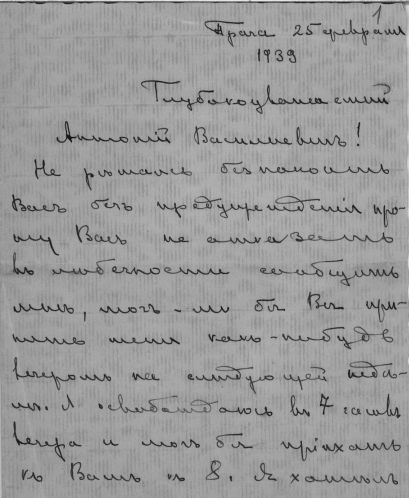 1
Прага 25 февраля
1939
Глубокоуважаемый
Антоній Васильевичъ!
Не рѣшаясь безпокоить
Васъ безъ предупрежденія про-
шу Васъ не отказать
въ любезности сообщить
мнѣ, могъ-ли бы Вы при-
нять меня какъ-нибудь
вечеромъ на слѣдующей недѣ-
лѣ. Я освобождаюсь въ 7 часовъ
вечера и могъ бы пріѣхать
къ Вамъ къ 8. Я хотѣлъ